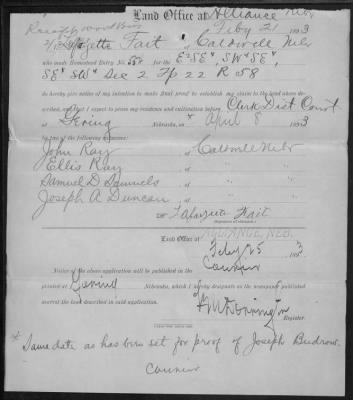 Land Office at Alliance Neb
Feby 21 1893
Lafayette Fait of Caldwell Neb
who made Homestead Entry No. for the E½SE¼, SW¼SE¼,
SE¼ SW¼ Sec 2 Tp 22 R 58
do hereby give notice of my intention to make final proof to establish my claim to the land above de-
scribed, and that I expect to prove my residence and cultivation before Clerk Dist Court
at Gering Nebraska, on * April 8 1893
by two of the following witnesses:
John Ray of Caldwell Nebr
Ellis Ray of " "
Samuel D Samuels of " "
Joseph A Duncan of " "
Lafayette Fait
(Signature of claimant.)
Land Office at ALLIANCE, NEB.
Feby 25 1893
Notice of the above application will be published in the Courier
printed at Gering Nebraska, which I hereby designate as the newspaper published
nearest the land described in said application.
Register.
* Same date as has been set for proof of Joseph Budrow.
Courier